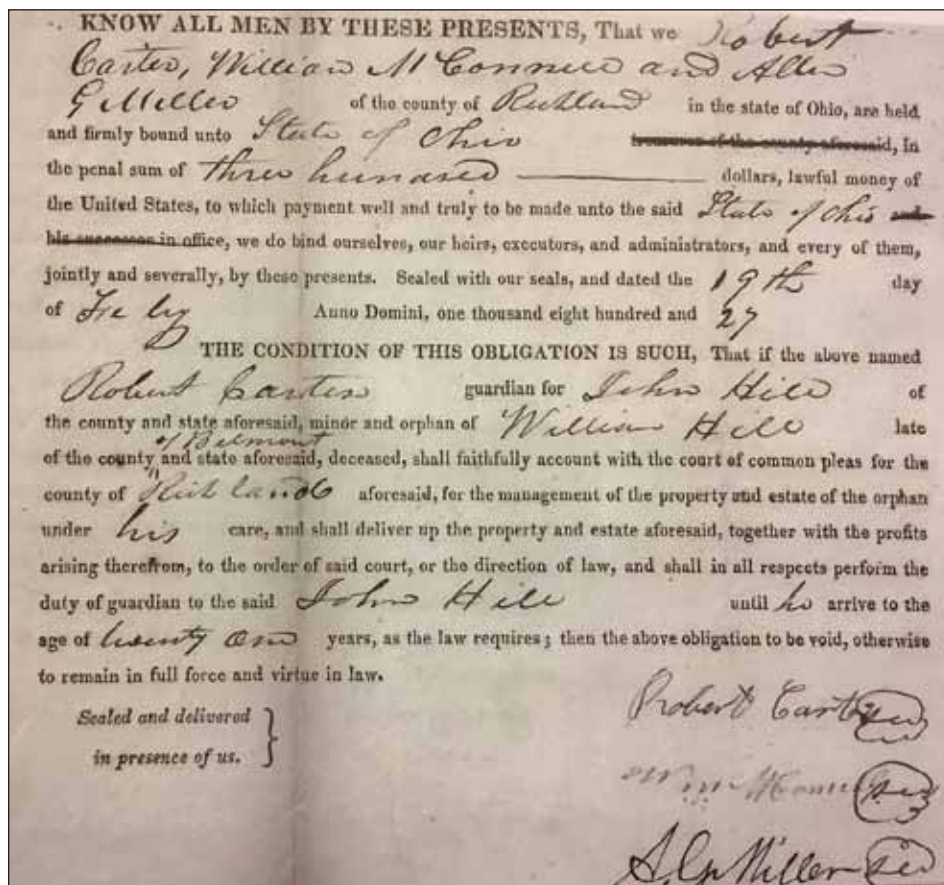 KNOW ALL MEN BY THESE PRESENTS, That we Robert
Carter, William McConnell and Allen
G Miller of the county of Richland in the state of Ohio, are held
and firmly bound unto State of Ohio treasurer of the county aforesaid, In
the penal sum of three hundred dollars, lawful money of
the United States, to which payment well and truly to be made unto the said State of Ohio and
his successor in office, we do bind ourselves, our heirs, executors, and administrators, and every of them,
jointly and severally, by these presents. Sealed with our seals, and dated the 19th day
of Feby Anno Domini, one thousand eight hundred and 27
THE CONDITION OF THIS OBLIGATION IS SUCH, That if the above named
Robert Carter guardian for John Hill of
the county and state aforesaid, minor and orphan of William Hill late
of Belmont
of the county and state aforesaid, deceased, shall faithfully account with the court of common pleas for the
county of Richland aforesaid, for the management of the property and estate of the orphan
under his care, and shall deliver up the property and estate aforesaid, together with the profits
arising therefrom, to the order of said court, or the direction of law, and shall in all respects perform the
duty of guardian to the said John Hill until he arrive to the
age of twenty one years, as the law requires; then the above obligation to be void, otherwise
to remain in full force and virtue in law.
Sealed and delivered
in presence of us.
Robert Carter
Wm McConnell
A. G. Miller